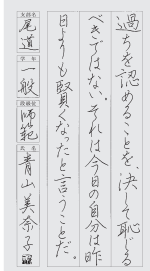 過ちを認めることを決して恥じる
べきではない。それは今日の自分は昨
日よりも賢くなったと言うことだ。
支部名
尾道
学年
一般
段級位
師範
氏名
青山美奈子